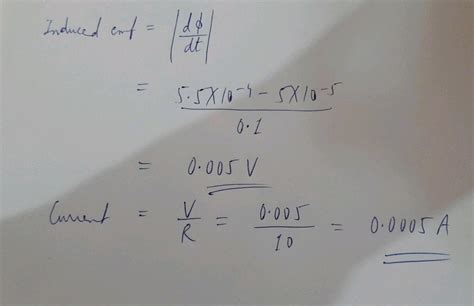 Induced emf = |dφ/dt|
= 5.5X10⁻⁴ - 5X10⁻⁵ / 0.1
= 0.005 V
Current = V/R = 0.005/10 = 0.0005 A